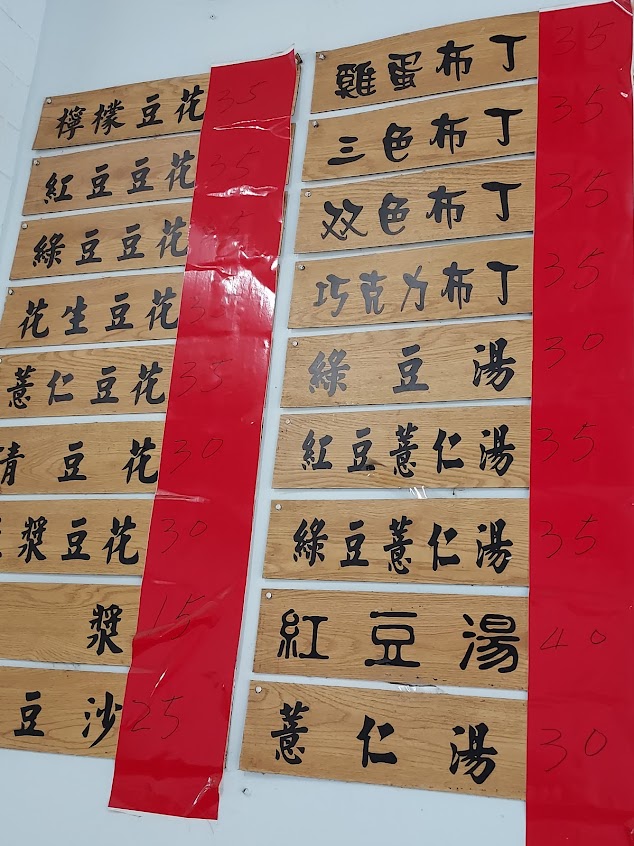 檸檬豆花 35
紅豆豆花 35
綠豆豆花 5
花生豆花
薏仁豆花 35
清豆花 30
漿豆花 30
漿 15
豆沙 25
雞蛋布丁 35
三色布丁 35
双色布丁 35
巧克力布丁 35
綠豆湯 30
紅豆薏仁湯 35
綠豆薏仁湯 35
紅豆湯 40
薏仁湯 30